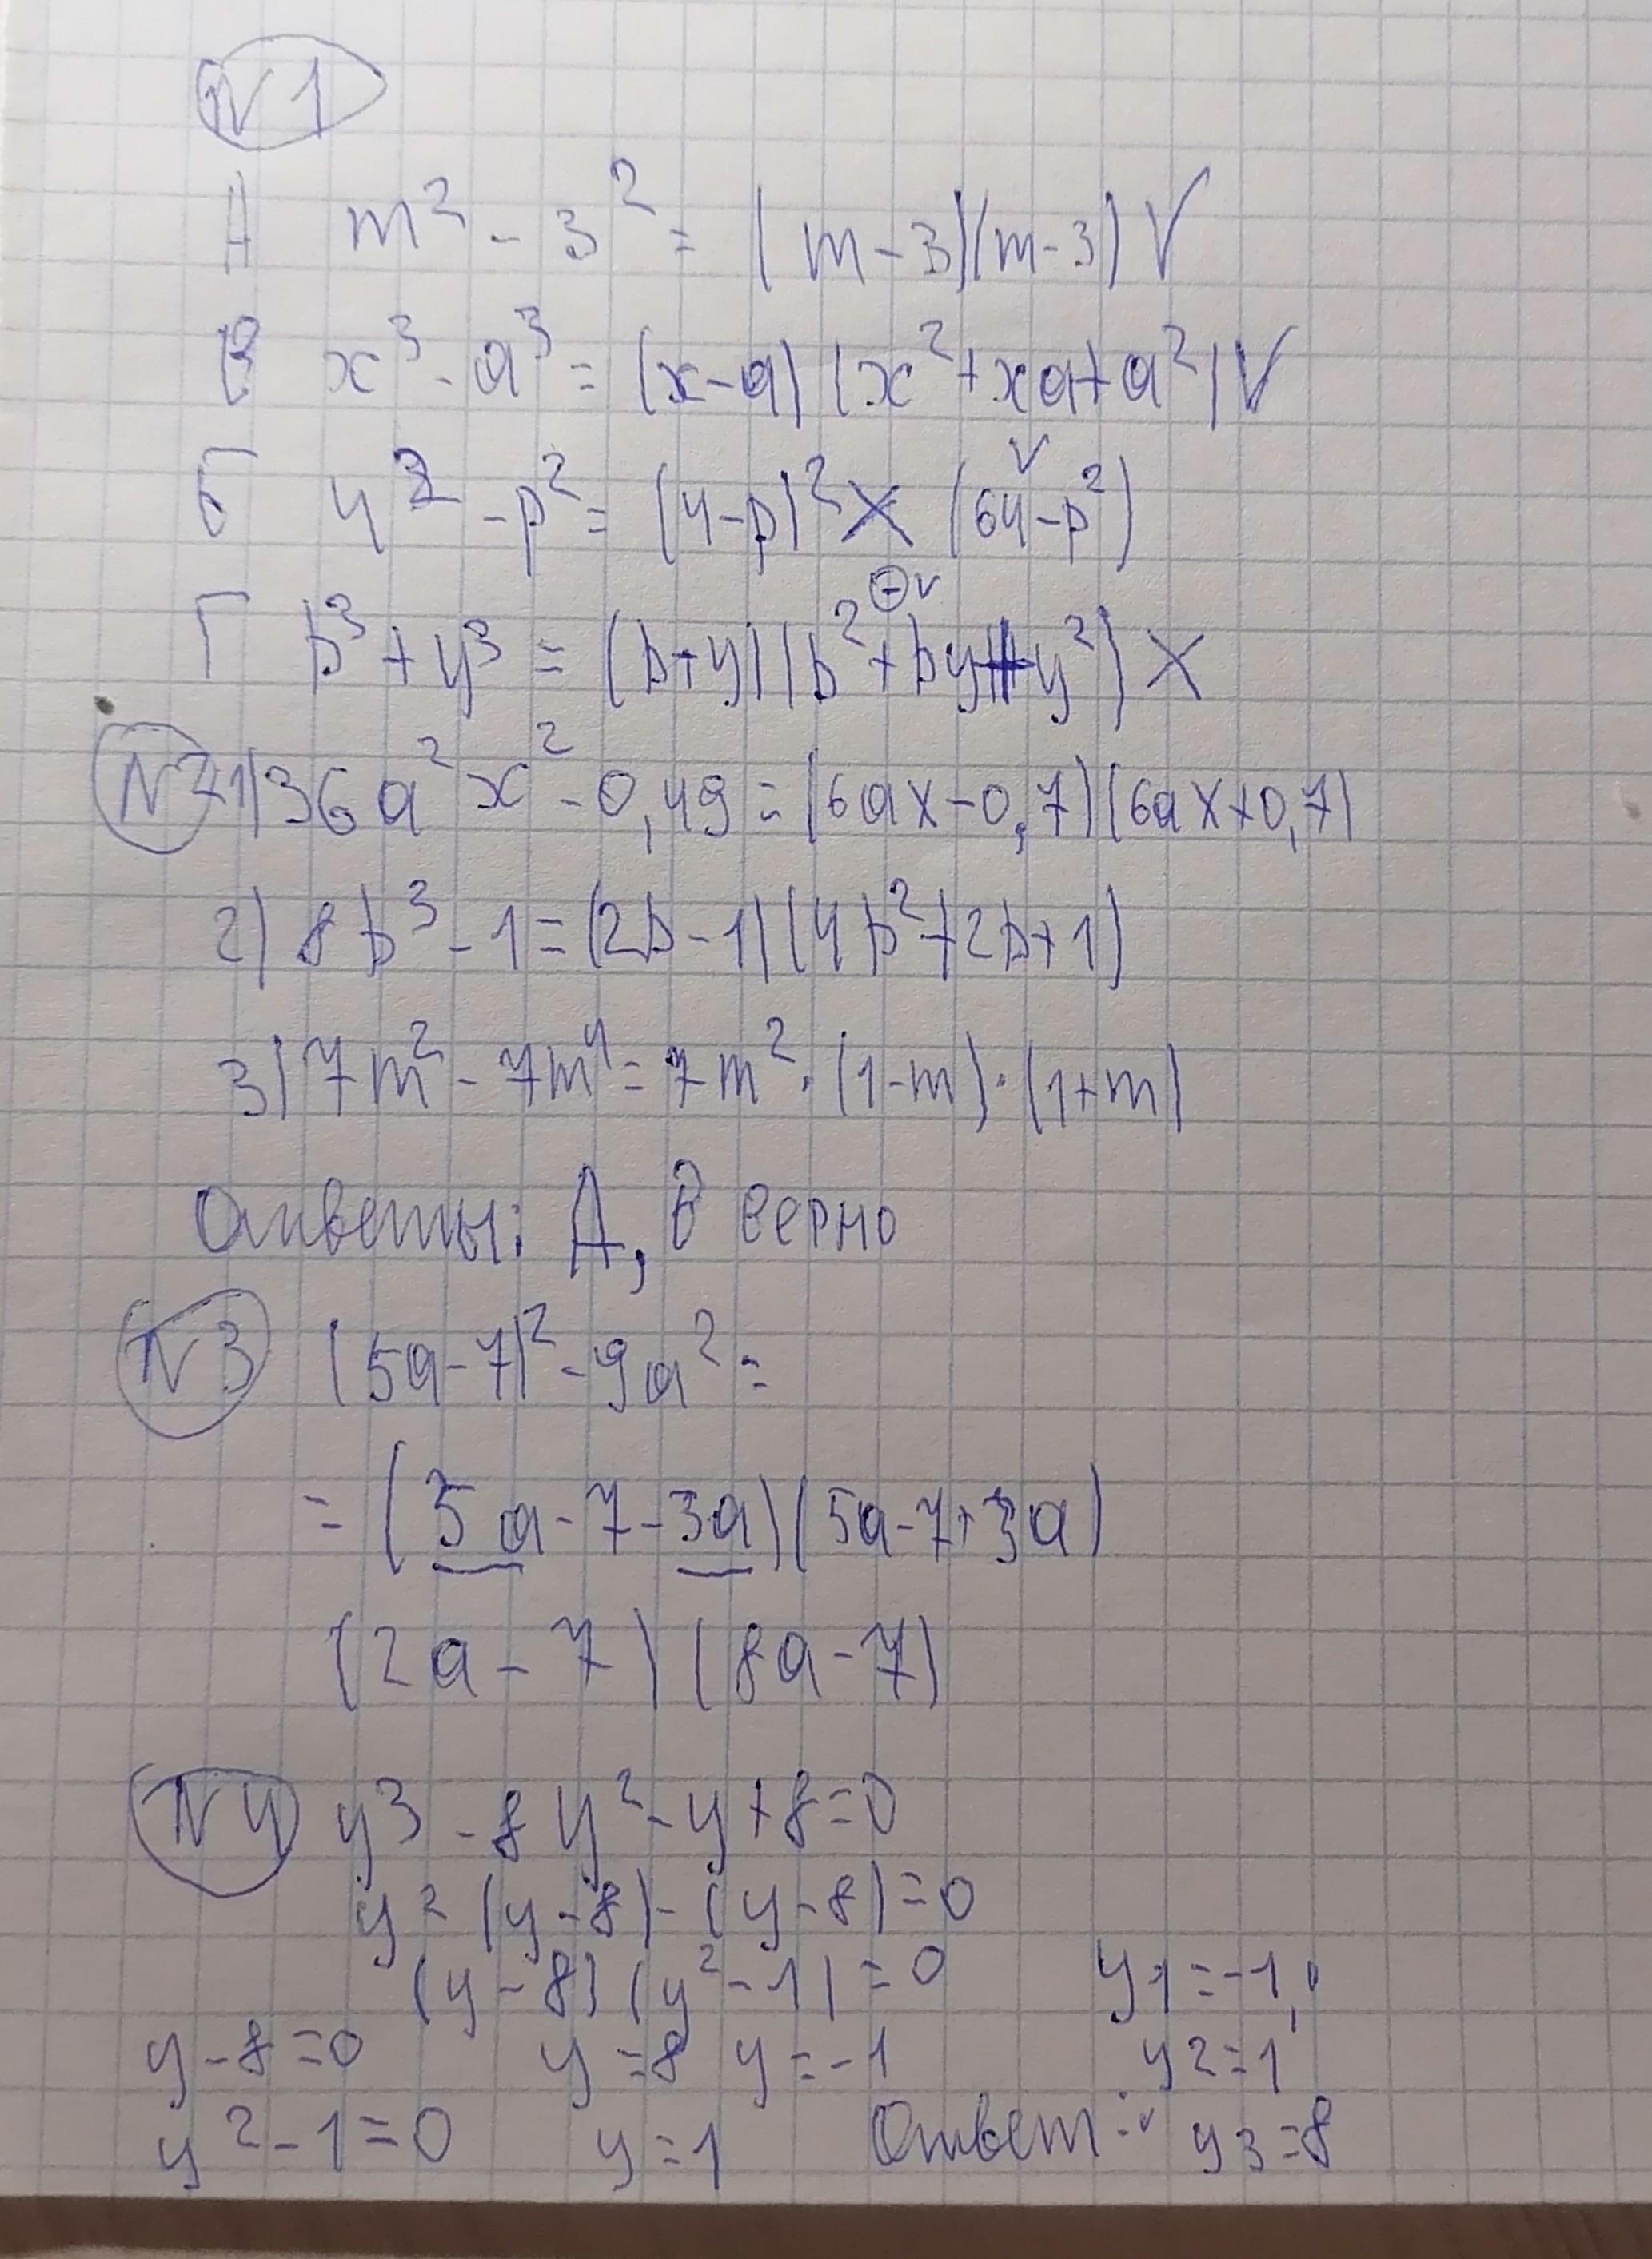 N1
А m² - 3² = (m-3)(m-3) V
В x³ - a³ = (x-a) (x² + xa + a²) V
Б 4³ - p² = (4-p)² X (64-p²) V
Г b³ + y³ = (b+y)(b² + by + y²) X ⊖ v
N2 1) 36a²x² - 0,49 = (6ax - 0,7)(6ax + 0,7)
2) 8b³ - 1 = (2b - 1)(4b² + 2b + 1)
3) 7m² - 7m⁴ = 7m² · (1-m) · (1+m)
Ответы: А, В верно
N3 (5a-7)² - 9a² =
= (5a - 7 - 3a)(5a - 7 + 3a)
(2a - 7) (8a - 7)
N4 y3 - 8y² - y + 8 = 0
y² (y-8) - (y-8) = 0
(y-8) (y²-1) = 0 y1 = -1,
y - 8 = 0 y = 8 y = -1 y2 = 1
y² - 1 = 0 y = 1 Ответ: y3 = 8